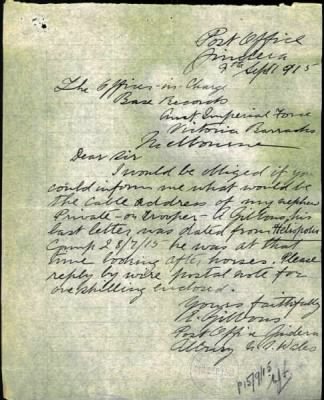 Post Office
Jindera
9th Sept 1915
The Officer-in-Charge
Base Records
Aust Imperial Force
Victoria Barracks
Melbourne
Dear Sir
I would be obliged if you
could inform me what would be
the cable address of my nephew
Private - or Trooper - A Gibbons, his
last letter was dated from Heliopolis
Camp 28/7/15 he was at that
time looking after horses. Please
reply by wire postal note for
one shilling enclosed.
Yours faithfully
Gibbons
Post Office Jindera
Albury N.S. Wales
p15/9/15